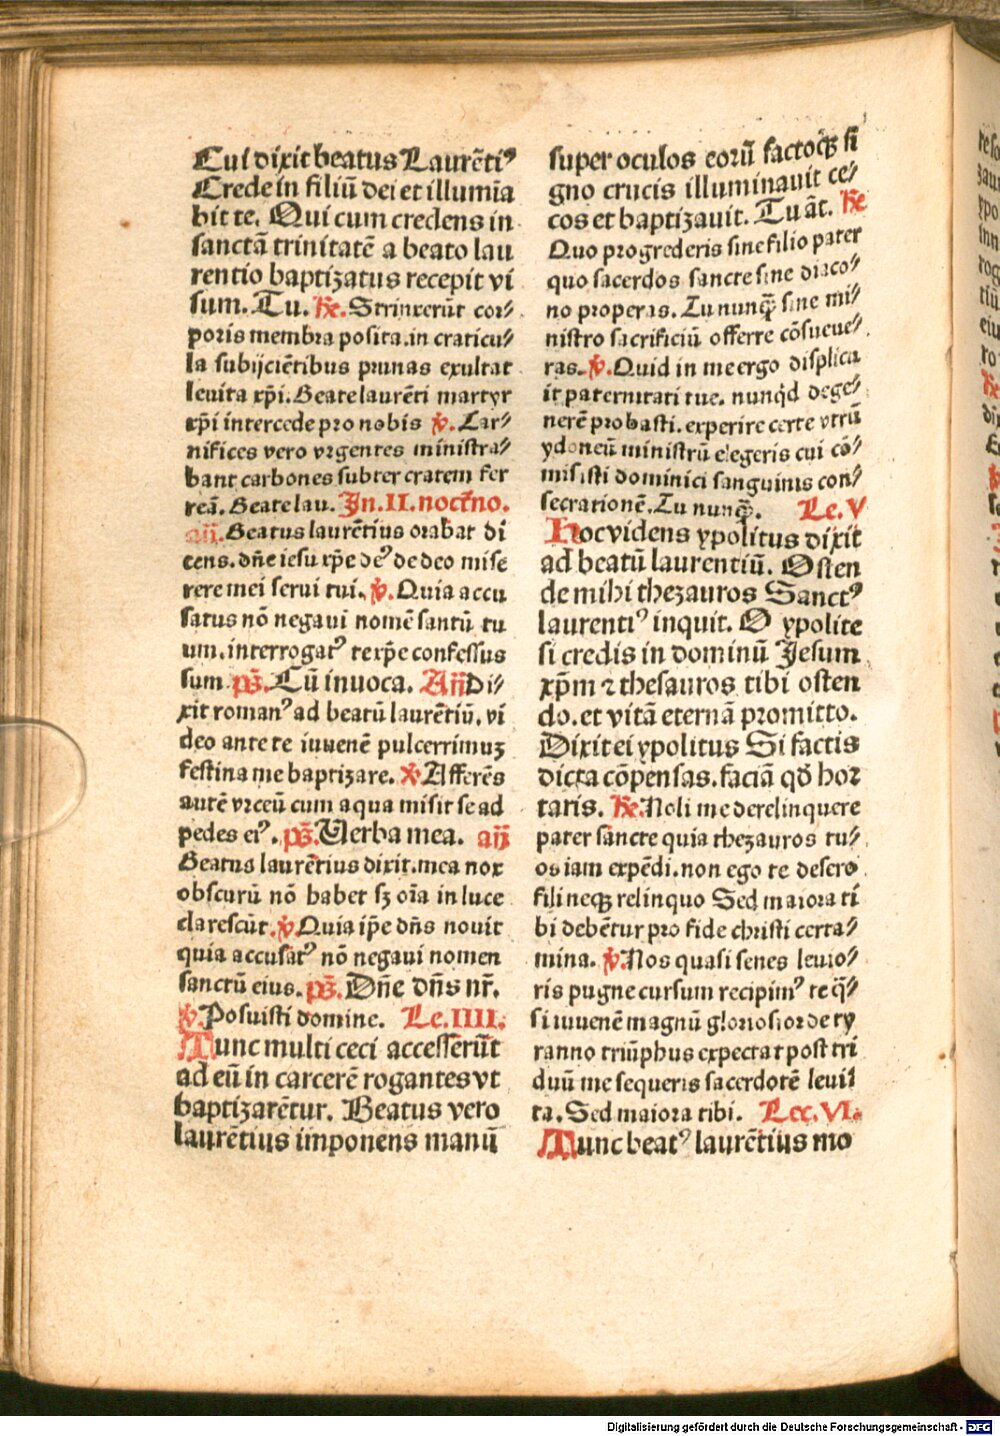 Cui dixit beatus Laurẽtiꝰ
Crede in filiũ dei et illumīa
bit te. Qui cum credens in
sanctã trinitatẽ a beato lau
rentio baptizatus recepit vi
sum. Tu. ℟. Strinxerũt cor⸗
poris membra posita.in craticu⸗
la subijciẽtibus prunas exultat
leuita xp̃i.Beate laurẽti martyr
xp̃i intercede pro nobis ℣. Car⸗
nifices vero vrgentes ministra⸗
bant carbones subter cratem fer
reã. Beate lau. In.II.noct̃no.
añ. Beatus laurẽtius orabat di
cens.dñe iesu xp̃e deꝰ de deo mise
rere mei serui tui. ℣. Quia accu
satus nõ negaui nomẽ santũ tu
um.interrogatꝰ te xp̃e confessus
sum. ps̃. Cũ inuoca. Añ Di⸗
xit romanꝰ ad beatũ laurẽtiũ. vi
deo ante te iuuenẽ pulcerrimuꝫ
festina me baptizare. ℣ Afferẽs
autẽ vrceũ cum aqua misit se ad
pedes eiꝰ. ps̃. Uerba mea. añ
Beatus laurẽtius dixit.mea nox
obscurũ nõ habet sꝫ oĩa in luce
clarescũt. ℣ Quia ip̃e dñs nouit
quia accusatꝰ nõ negaui nomen
sanctũ eius. ps̃. Dñe dñs nr̃.
℣. Posuisti domine. Le.IIII.
Tunc multi ceci accesserũt
ad eũ in carcerẽ rogantes vt
baptizarẽtur. Beatus vero
laurẽtius imponens manũ
super oculos eorũ factoqꝫ si
gno crucis illuminauit ce⸗
cos et baptizauit. Tu aũt. ℟
Quo progrederis sine filio pater
quo sacerdos sancte sine diaco⸗
no properas. Tu nunqꝫ̃ sine mi⸗
nistro sacrificiũ offerre cõsueue⸗
ras. ℣. Quid in me ergo displicu
it paternitati tue. nunq̃d dege⸗
nerẽ probasti. experire certe vtrũ
ydoneũ ministrũ elegeris cui cõ⸗
misisti dominici sanguinis con⸗
secrationẽ. Tu nunqꝫ̃. Le. V
Hoc videns ypolitus dixit
ad beatũ laurentiũ. Osten
de mihi thezauros Sanctꝰ
laurentiꝰ inquit. O ypolite
si credis in dominũ Jesum
xp̃m ⁊ thesauros tibi osten
do. et vitã eternã promitto.
Dixit ei ypolitus Si factis
dicta cõpensas. faciã qď hor
taris. ℟. Noli me derelinquere
pater sãncte quia thezauros tu⸗
os iam expẽdi.non ego te desero
fili neqꝫ relinquo Sed maiora ti
bi debẽtur pro fide christi certa⸗
mina. ℣. Nos quasi senes leuio⸗
ris pugne cursum recipimꝰ te q̃⸗
si iuuenẽ magnũ gloriosior de ty
ranno triũphus expectat post tri
duũ me sequeris sacerdotẽ leuit
ta. Sed maiora tibi. Lec. VI.
Tunc beatꝰ laurẽtius mo
Digitalisierung gefördert durch die Deutsche Forschungsgemeinschaft - DFG